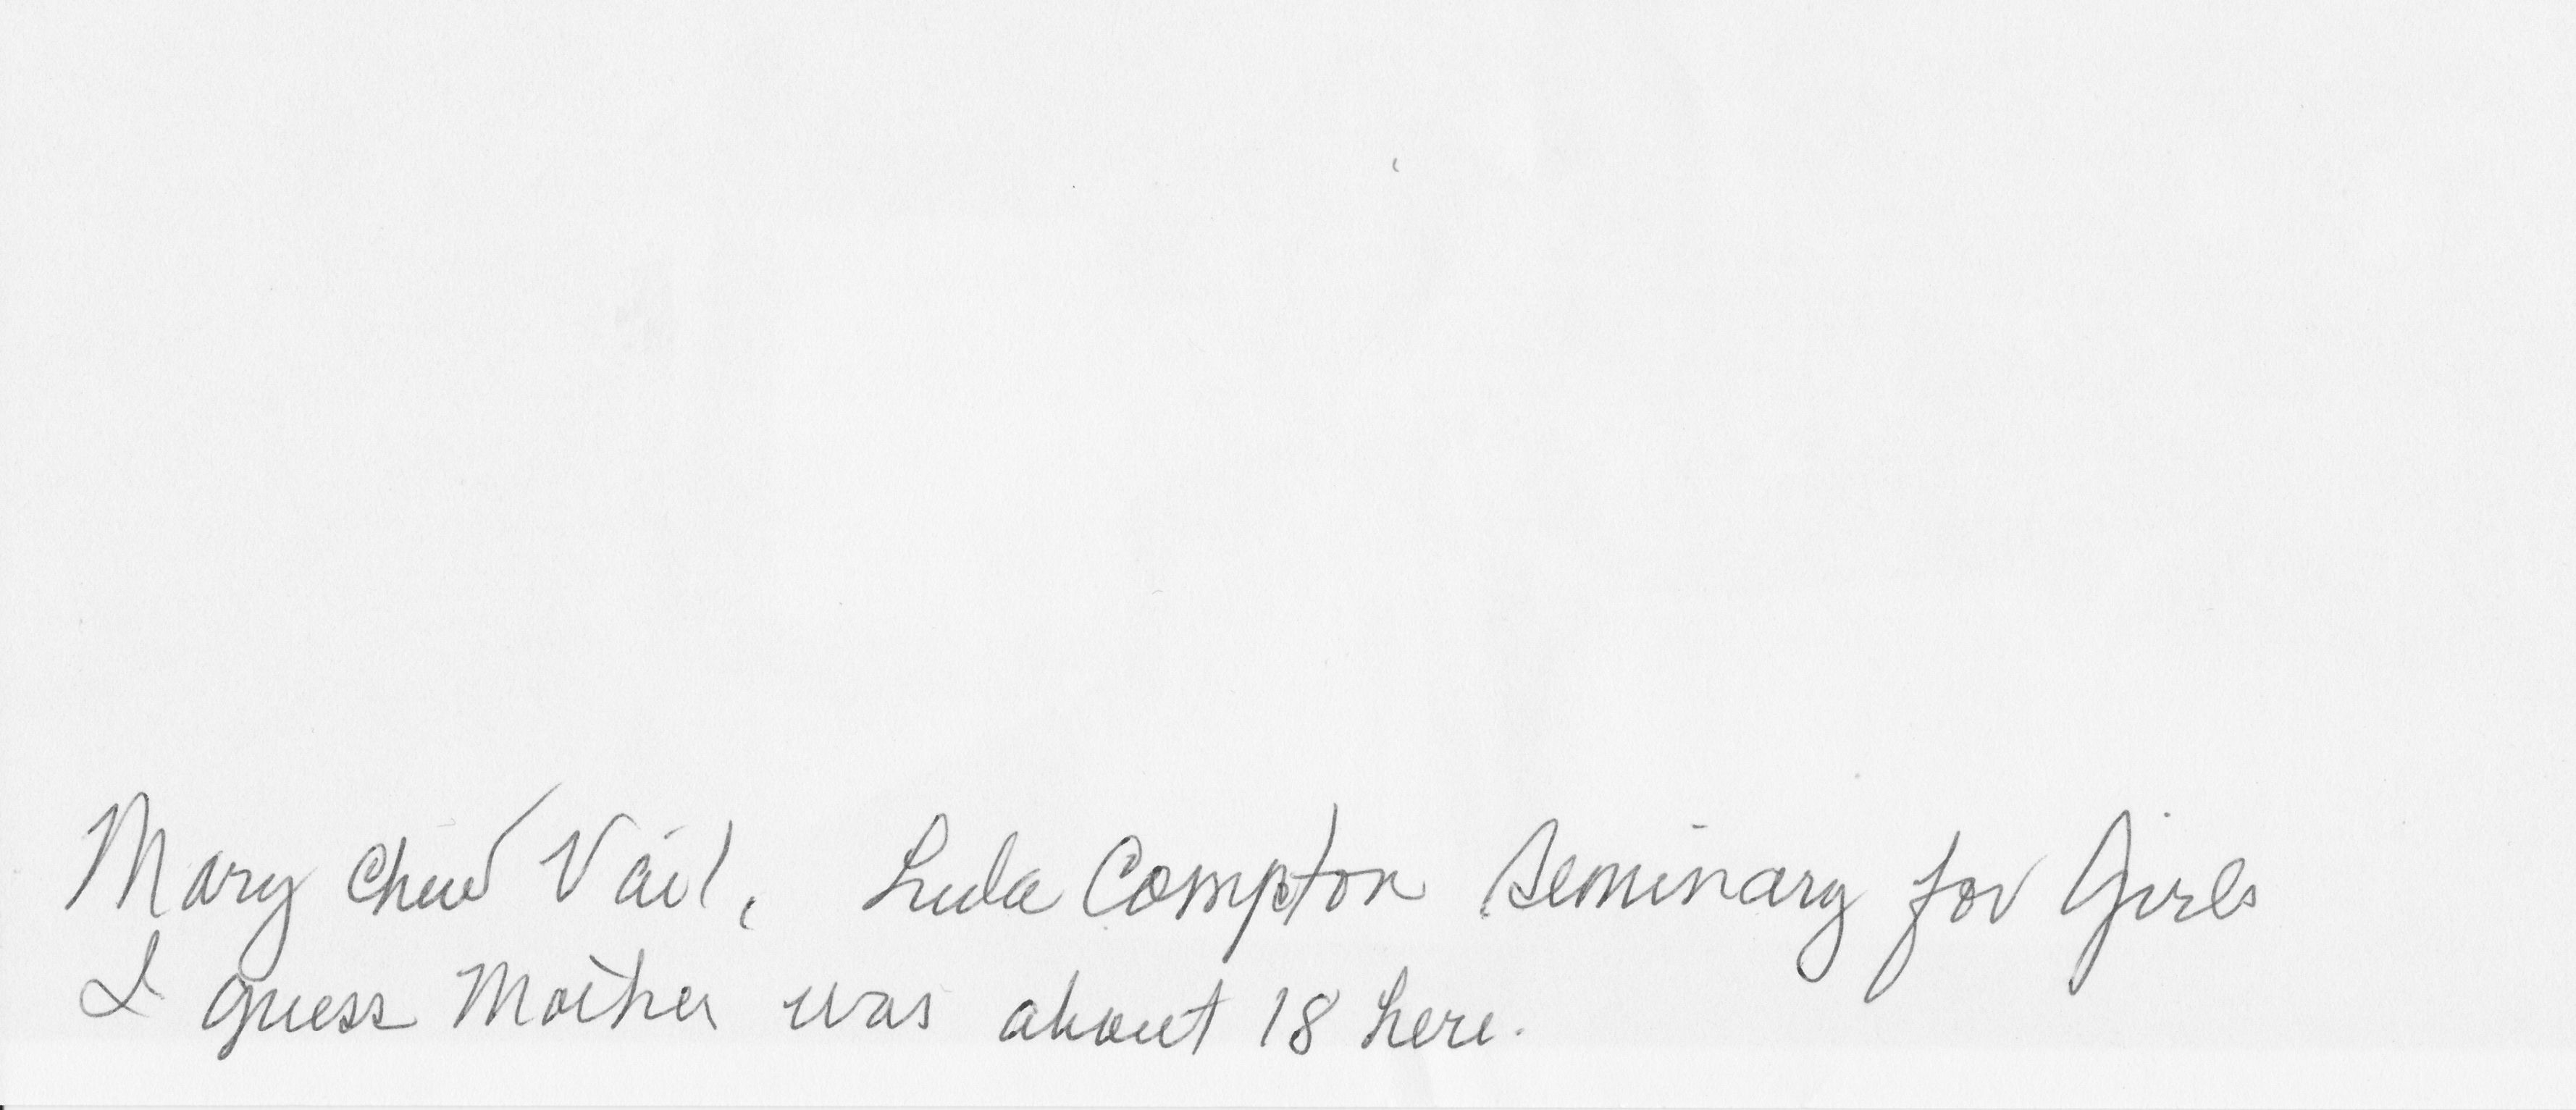 Mary Chew Vail, Lula Compton Seminary for Girls
I guess Mother was about 18 here.